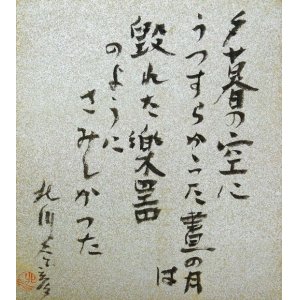 夕暮の空に
うつすらかゝつた晝の月は
毀れた樂器
のように
さみしかつた
北川冬彦